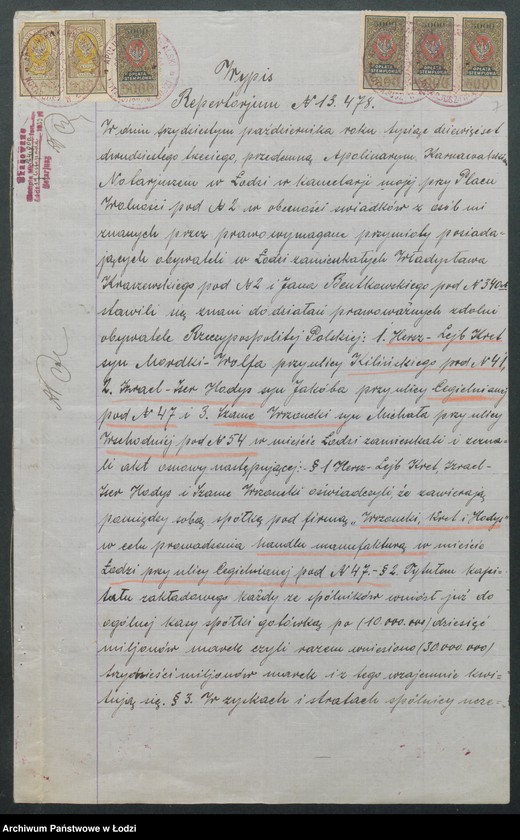 Wypis
Repertorjum № 13.478.
W dniu trzydziestym października roku tysiąc dziewięćset
dwudziestego trzeciego, przedemną Apolinarym Karnawalskim
Notarjuszem w Łodzi w kancelarji mojej przy Placu
Wolności pod № 2 w obecności świadków z osób mi
znanych przez prawo wymagane przymioty posiada-
jących obywateli w Łodzi zamieszkałych Władysława
Kraszewskiego pod № 2 i Jana Bentkowskiego pod № 340
stawili się znani do działań prawoważnych zdolni
obywatele Rzeczypospolitej Polskiej: 1. Hersz-Lejb Kret
syn Mordki-Wolfa przy ulicy Kilińskiego pod № 41,
2. Izrael-Iser Hadys syn Jakóba przy ulicy Cegielnianej
pod № 47 i 3. Szame Wrzoncki syn Michała przy ulicy
Wschodniej pod № 54 w mieście Łodzi zamieszkali i zezna-
li akt osnowy następującej:- § 1 Hersz-Lejb Kret, Izrael-
Iser Hadys i Szame Wrzoncki oświadczyli, że zawierają
pomiędzy sobą spółkę pod firmą „Wrzoncki, Kret i Hadys"
w celu prowadzenia handlu manufakturą w mieście
Łodzi przy ulicy Cegielnianej pod № 47.- § 2. Tytułem kapi-
tału zakładowego każdy ze spólników wniósł już do
ogólnej kasy spółki gotówką po (10.000.000) dziesięć
miljonów marek czyli razem wniesiono (30.000.000)
trzydzieści miljonów marek i z tego wzajemnie kwi-
tują się. § 3. W zyskach i stratach spólnicy ucze-
5000
OPŁATA
STEMPLOWA
Skasowano
Notarjusz
Archiwum Państwowe w Łodzi